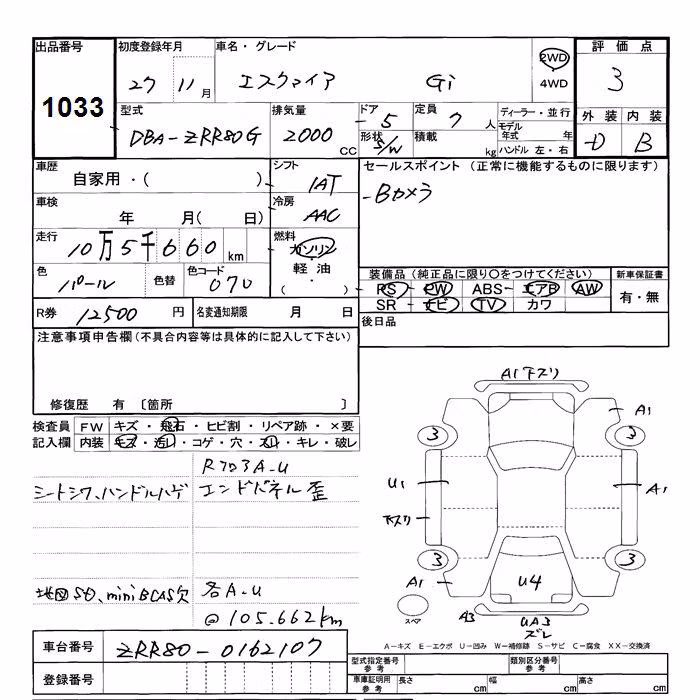 出品番号 1033
初度登録年月 27 11月
車名・グレード エスクァイア Gi
2WD
4WD
評価点 3
型式 DBA-ZRR80G
排気量 2000 CC
ドア 5
形状 S/W
定員 7 人
積載 kg
ディーラー・並行
モデル年式 年
ハンドル 左・右
外装 内装
D B
車歴 自家用・( )
シフト IAT
セールスポイント (正常に機能するものに限ります)
-Bカメラ
車検 年 月( 日)
冷房 AAC
走行 10万5千660km
燃料 ガソリン
軽油
( ・ )
色 パール 色替 色コード 070
装備品 (純正品に限り○をつけてください)
PS PW ABS エアB AW
SR ナビ TV カワ
新車保証書
有・無
R券 12500 円
名変通知期限 月 日
後日品
注意事項申告欄(不具合内容等は具体的に記入して下さい)
修復歴 有 〔箇所 〕
検査員記入欄
FW キズ・飛石・ヒビ割・リペア跡・×要
内装 キズ・汚レ・コゲ・穴・スレ・キレ・破レ
シートシワ、ハンドルハゲ
エンドパネル歪
地図SD、miniBCAS欠
各A-U
@105.662km
A1下スリ
A1
3
3
U1
下スリ
A1
3
3
A1
U4
A3
UA3
ズレ
スペア
A-キズ E-エクボ U-凹み W-補修跡 S-サビ C-腐食 XX-交換済
車台番号 ZRR80-0162107
登録番号
型式指定番号 参考
類別区分番号 参考
車庫証明用 参考
長さ cm
幅 cm
高さ cm